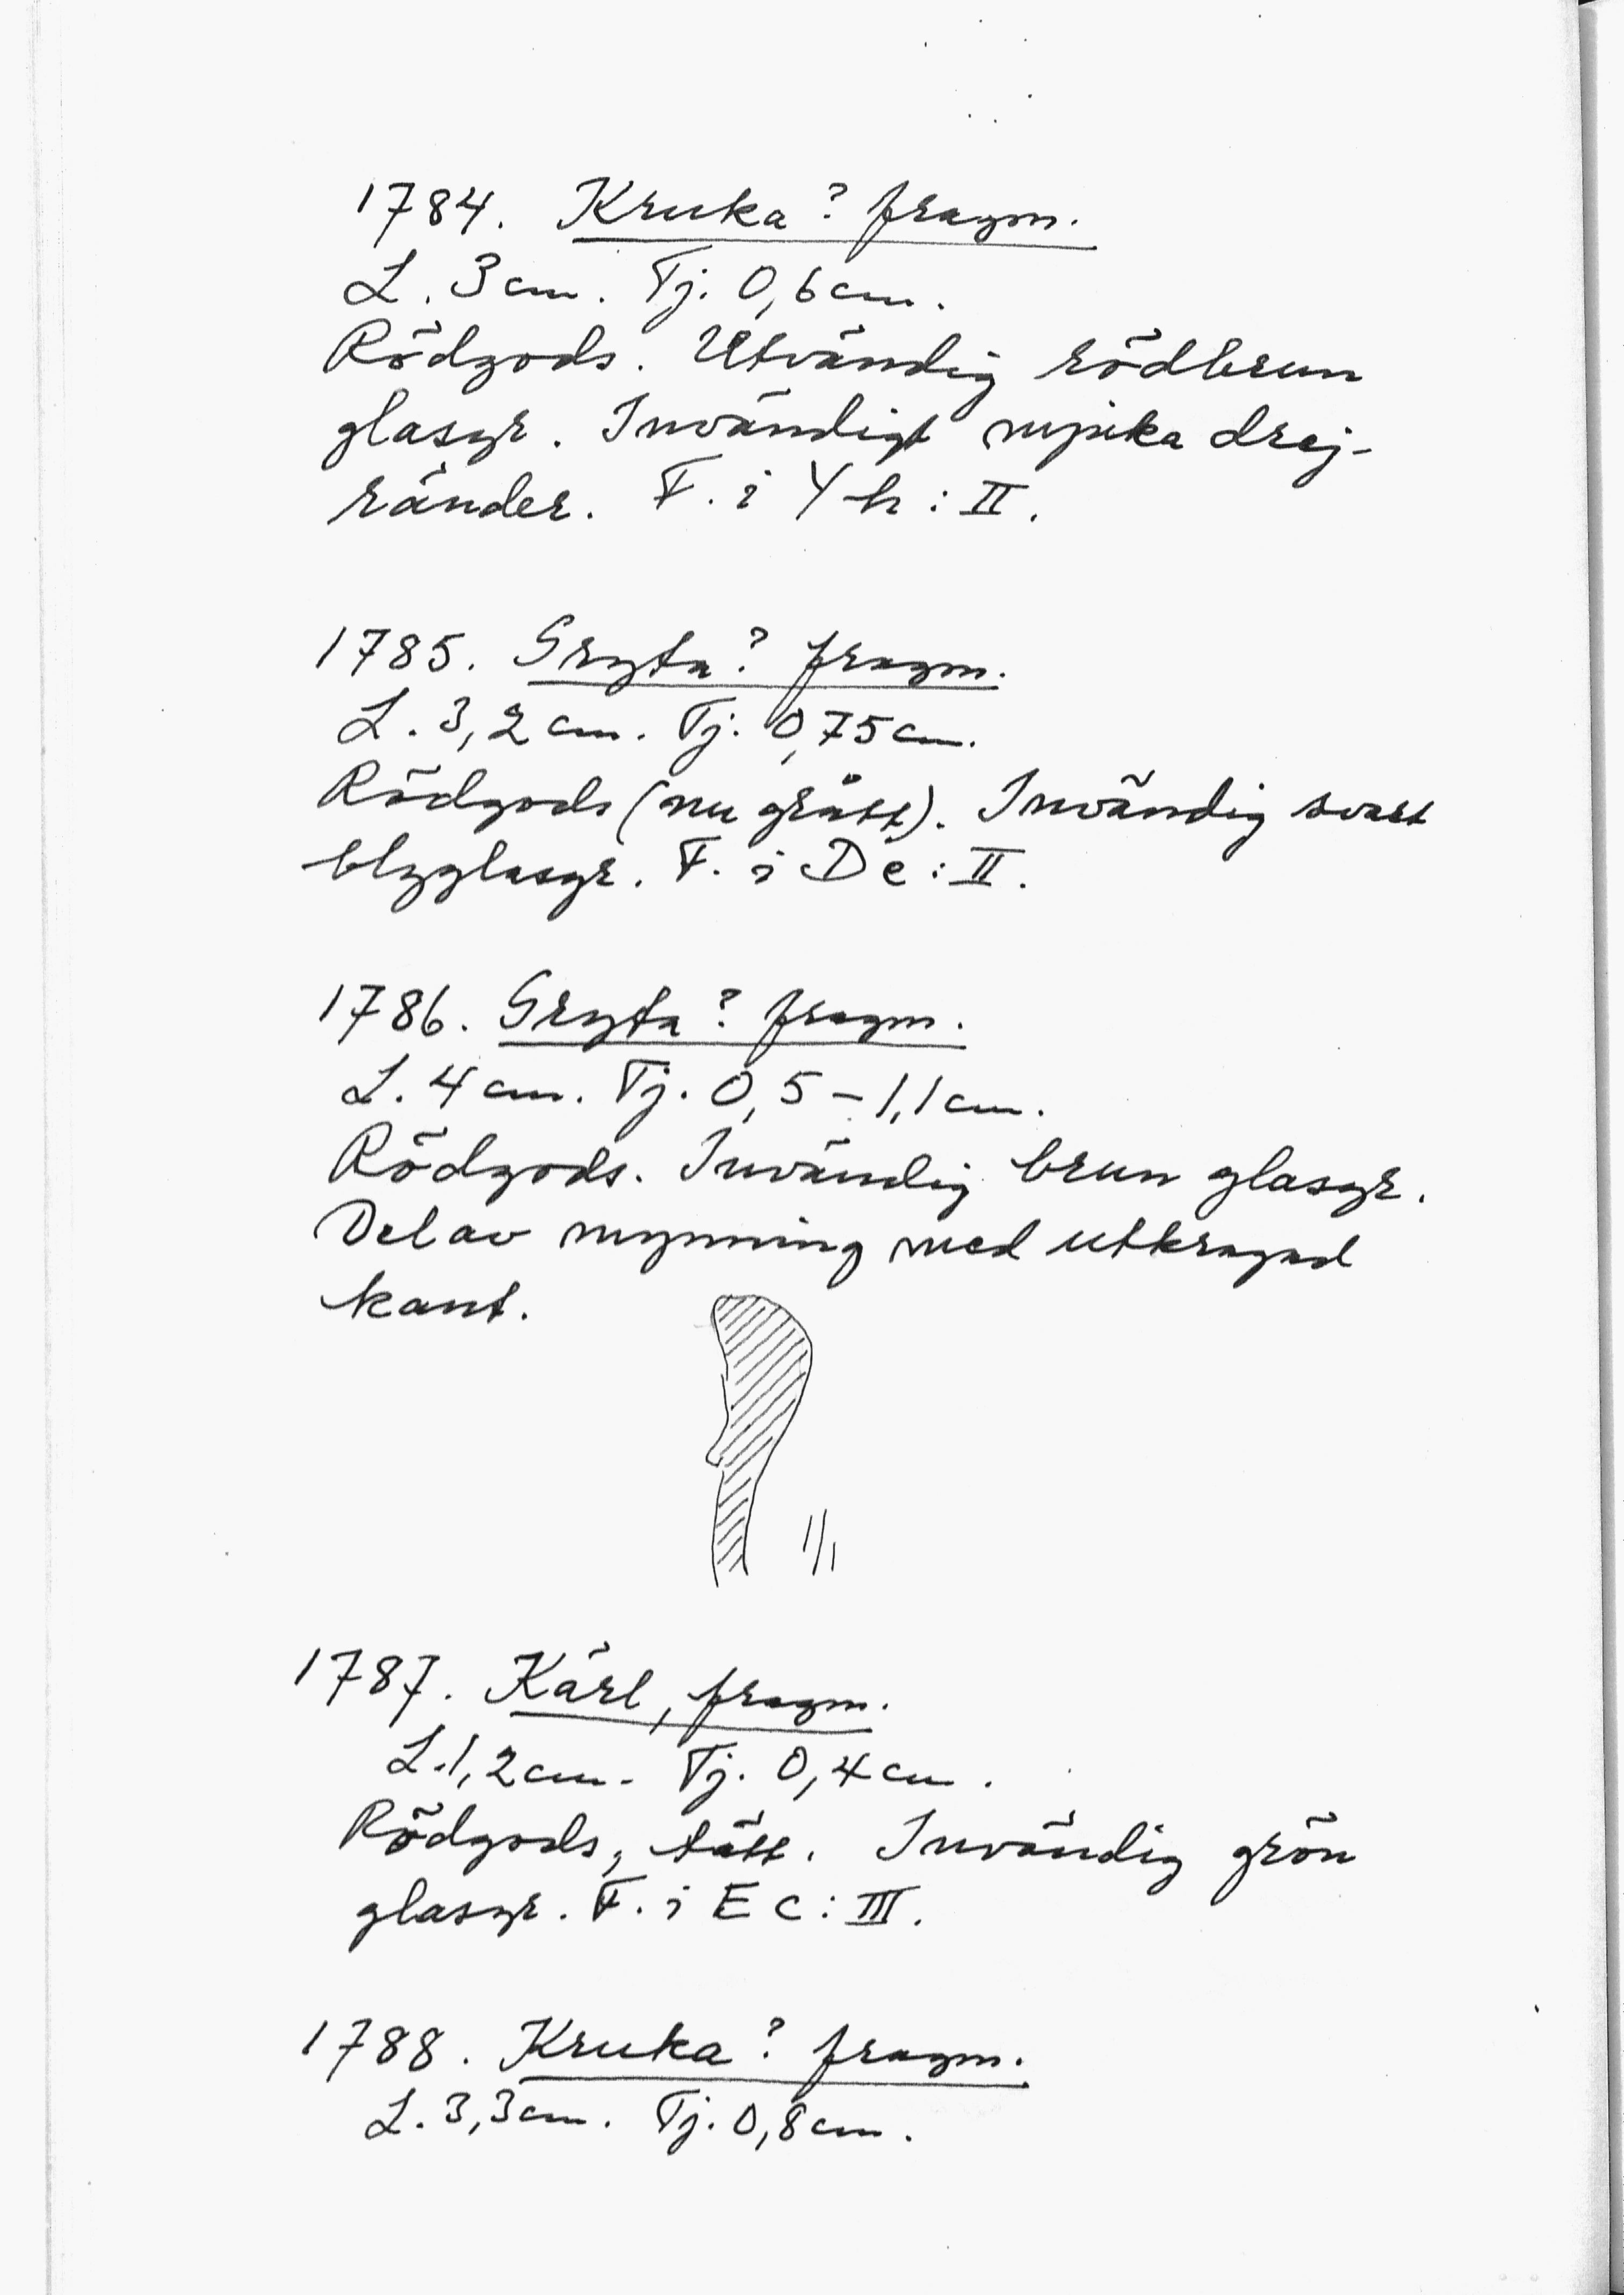 1784. Kruka? fragm.
L. 3 cm. Tj. 0,6 cm.
Rödgods. Utvändig rödbrun
glasyr. Invändigt mjuka drej-
ränder. F. i Y h : II.
1785. Gryta? fragm.
L. 3,2 cm. Tj. 0,75 cm.
Rödgods (nu grått). Invändig svart
blyglasyr. F. i De : II.
1786. Gryta? fragm.
L. 4 cm. Tj. 0,5 – 1,1 cm.
Rödgods. Invändig brun glasyr.
Del av mynning med utkragad
kant.
1/1
1787. Kärl, fragm.
L. 1,2 cm. Tj. 0,4 cm.
Rödgods, tätt. Invändig grön
glasyr. F. i E c : III.
1788. Kruka? fragm.
L. 3,3 cm. Tj. 0,8 cm.